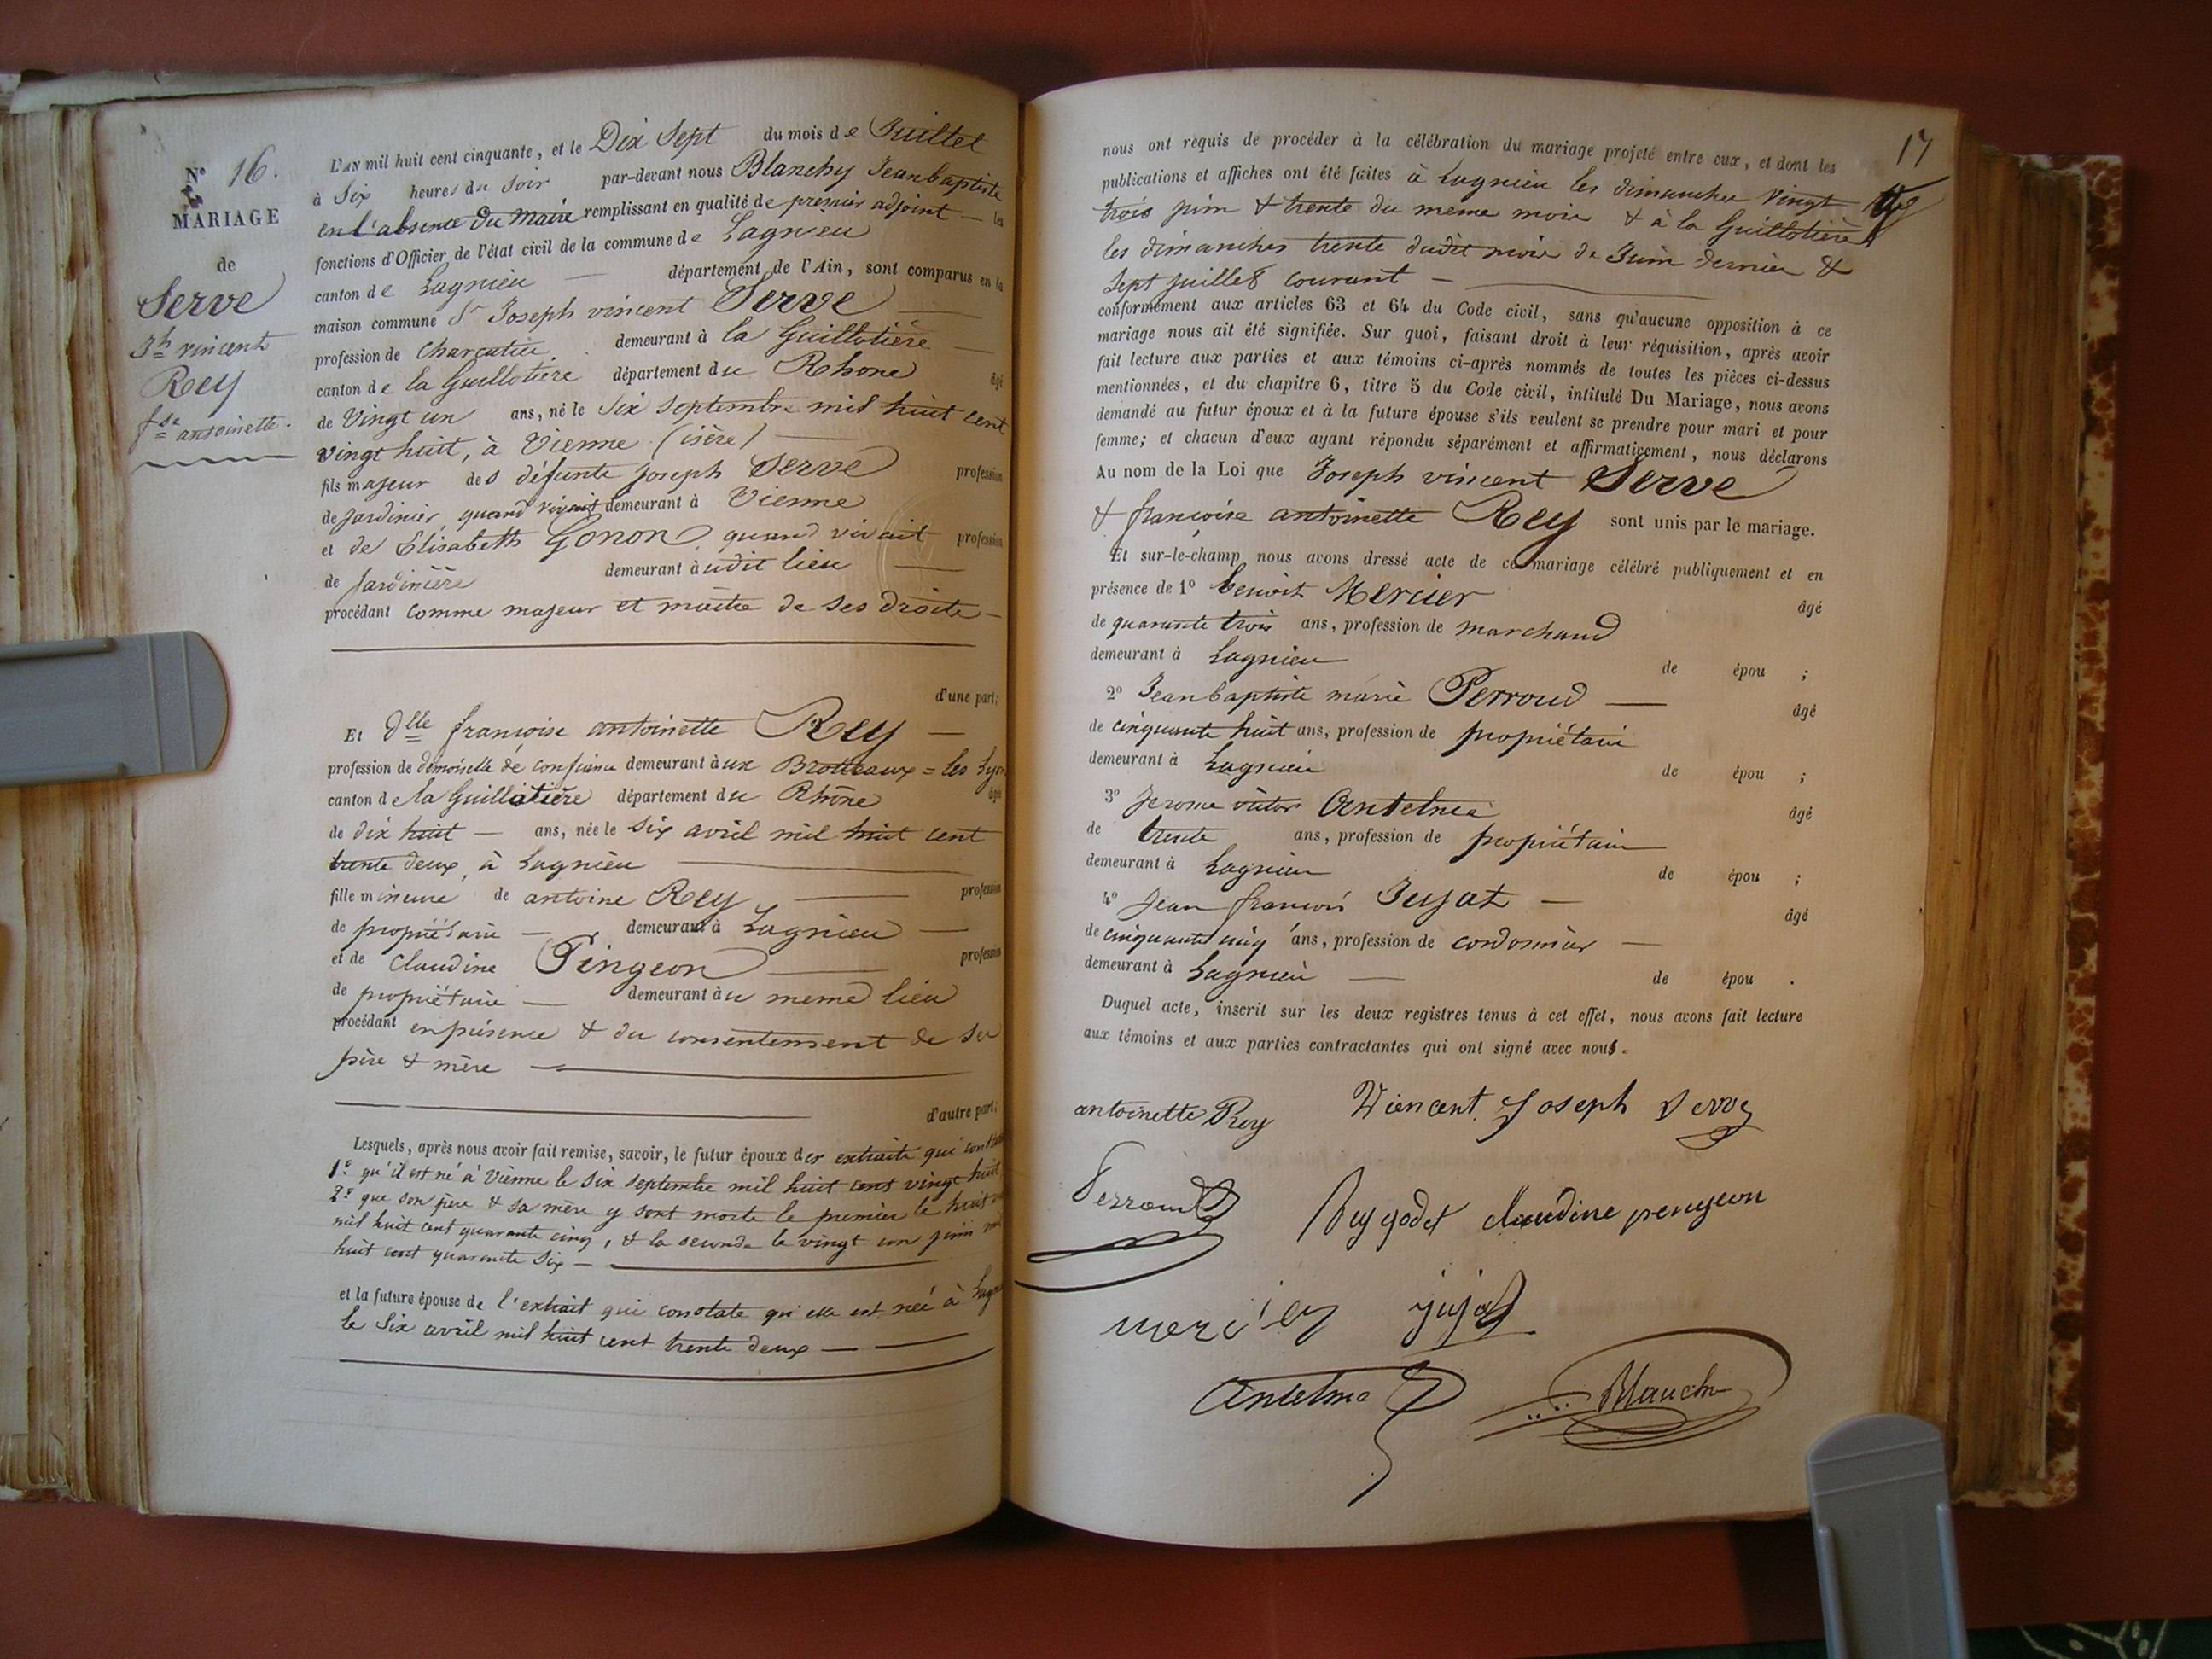 Nº 16.
MARIAGE
de
Serve
Jh vincent
Rey
fse antoinette.
L'AN mil huit cent cinquante, et le Dix Sept du mois de Juillet
à Six heures du Soir par-devant nous Blanchy Jeanbaptiste
en l'absence du Maire remplissant en qualité de premier adjoint — les
fonctions d'Officier de l'état civil de la commune de Lagnieu
canton de Lagnieu — département de l'Ain, sont comparus en la
maison commune Sr Joseph vincent Serve —
profession de charcutier demeurant à la Guillotière —
canton de la Guillotière département du Rhone âgé
de Vingt un ans, né le Six septembre mil huit cent
vingt huit, à Vienne (isère) —
fils majeur des défunts Joseph Serve profession
de Jardinier, quand vivait demeurant à Vienne
et de Elisabeth Gonon, quand vivait profession
de Jardinière demeurant audit lieu —
procédant comme majeur et maitre de ses droits —
d'une part;
Et Dlle françoise antoinette Rey —
profession de demoiselle de confiance demeurant aux Brotteaux = les Lyon
canton de la Guillotière département du Rhône âgée
de dix huit — ans, née le Six avril mil huit cent
trente deux, à Lagnieu —
fille mineure de antoine Rey — profession
de propriétaire — demeurant à Lagnieu —
et de Claudine Pingeon — profession
de propriétaire — demeurant au meme lieu
procédant en présence & du consentement de ses
père & mère —
d'autre part;
Lesquels, après nous avoir fait remise, savoir, le futur époux des extraits qui
1º qu'il est né à Vienne le six septembre mil huit cent vingt huit
2º que son père & sa mère y sont morts le premier le huit
mil huit cent quarante cinq, & la seconde le vingt un juin mil
huit cent quarante six —
et la future épouse de l'extrait qui constate qu'elle est née à
le Six avril mil huit cent trente deux —
17
nous ont requis de procéder à la célébration du mariage projeté entre eux, et dont les
publications et affiches ont été faites à Lagnieu les dimanches Vingt
trois juin & trente du meme mois & à la Guillotière
les dimanches trente dudit mois de Juin dernier &
Sept juillet courant —
conformément aux articles 63 et 64 du Code civil, sans qu'aucune opposition à ce
mariage nous ait été signifiée. Sur quoi, faisant droit à leur réquisition, après avoir
fait lecture aux parties et aux témoins ci-après nommés de toutes les pièces ci-dessus
mentionnées, et du chapitre 6, titre 5 du Code civil, intitulé Du Mariage, nous avons
demandé au futur époux et à la future épouse s'ils veulent se prendre pour mari et pour
femme; et chacun d'eux ayant répondu séparément et affirmativement, nous déclarons
Au nom de la Loi que Joseph vincent Serve
& françoise antoinette Rey sont unis par le mariage.
Et sur-le-champ nous avons dressé acte de ce mariage célébré publiquement et en
présence de 1º benoit Mercier âgé
de quarante trois ans, profession de marchand
demeurant à Lagnieu de épou ;
2º Jeanbaptiste marie Perroud — âgé
de cinquante huit ans, profession de propriétaire
demeurant à Lagnieu de épou ;
3º Jerome victor Antelme âgé
de trente ans, profession de propriétaire
demeurant à Lagnieu de épou ;
4º Jean francois Jujat — âgé
de cinquante cinq ans, profession de cordonnier —
demeurant à Lagnieu — de épou .
Duquel acte, inscrit sur les deux registres tenus à cet effet, nous avons fait lecture
aux témoins et aux parties contractantes qui ont signé avec nous.
antoinette Rey Viencent Joseph Serve
Perroud Rey godet claudine penjeon
mercier jujat
Antelme Blanchy